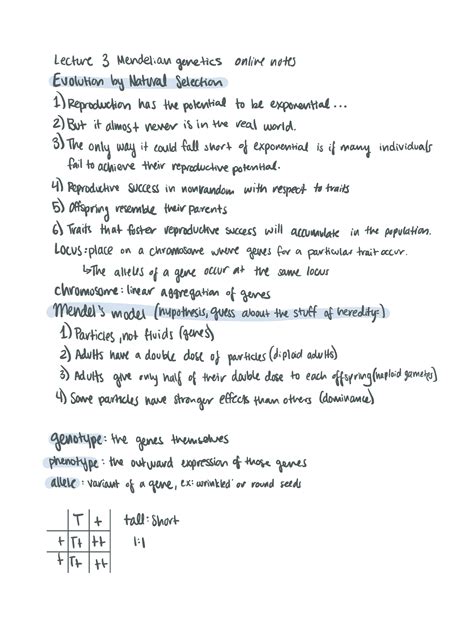 Lecture 3 Mendelian genetics online notes
Evolution by Natural Selection
1) Reproduction has the potential to be exponential...
2) But it almost never is in the real world.
3) The only way it could fall short of exponential is if many individuals
fail to achieve their reproductive potential.
4) Reproductive success in nonrandom with respect to traits
5) Offspring resemble their parents
6) Traits that foster reproductive success will accumulate in the population.
Locus: place on a chromosome where genes for a particular trait occur.
↳The alleles of a gene occur at the same locus
chromosome: linear aggregation of genes
Mendel's model (hypothesis, guess about the stuff of heredity:)
1) Particles, not fluids (genes)
2) Adults have a double dose of particles (diploid adults)
3) Adults give only half of their double dose to each offspring (haploid gametes)
4) Some particles have stronger effects than others (dominance)
genotype: the genes themselves
phenotype: the outward expression of those genes
allele: variant of a gene, ex: wrinkled or round seeds
T t tall: short
t Tt tt 1:1
t Tt tt